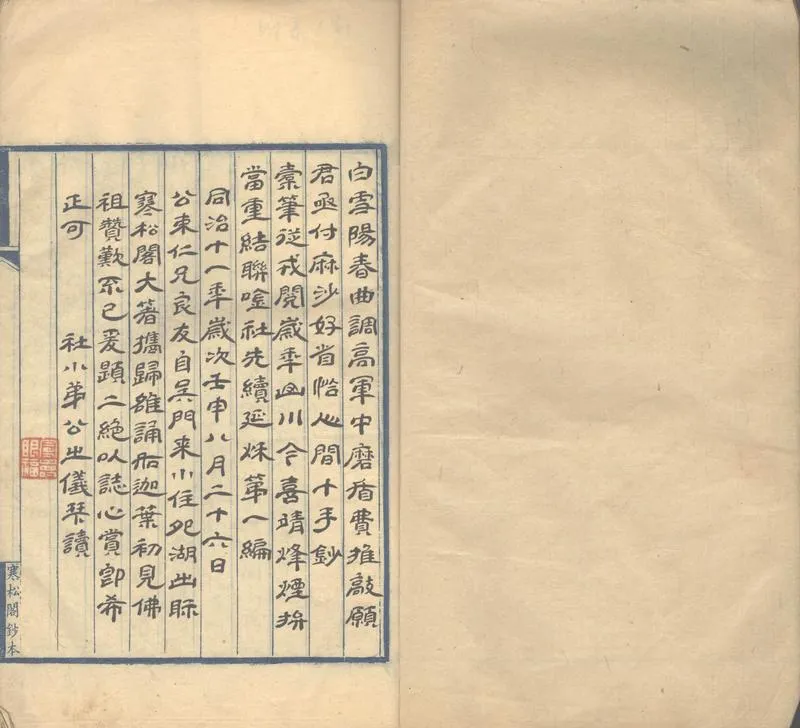 白雪陽春曲調高軍中磨盾費推敲願
君亟付麻沙好省恰心閒十手鈔
橐筆從戎閱歲秊川今喜靖烽煙
當重結聯唫社先續延秌第一編
同治十一秊歲次壬申八月二十六日
公束仁兄良友自吳門来小住夗湖出眎
寒松閣大箸攜歸雒誦如迦葉初見佛
祖贊歎不已爰題二絕以誌心賞即希
正可　社小弟公之儀琴讀
眼福
寒松閣鈔本